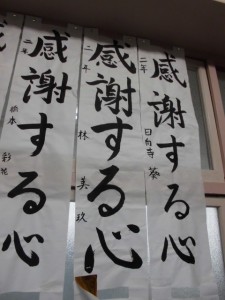 感謝する心
二年 日向寺 葵
感謝する心
二年 林 美玖
感謝する心
二年 橋本